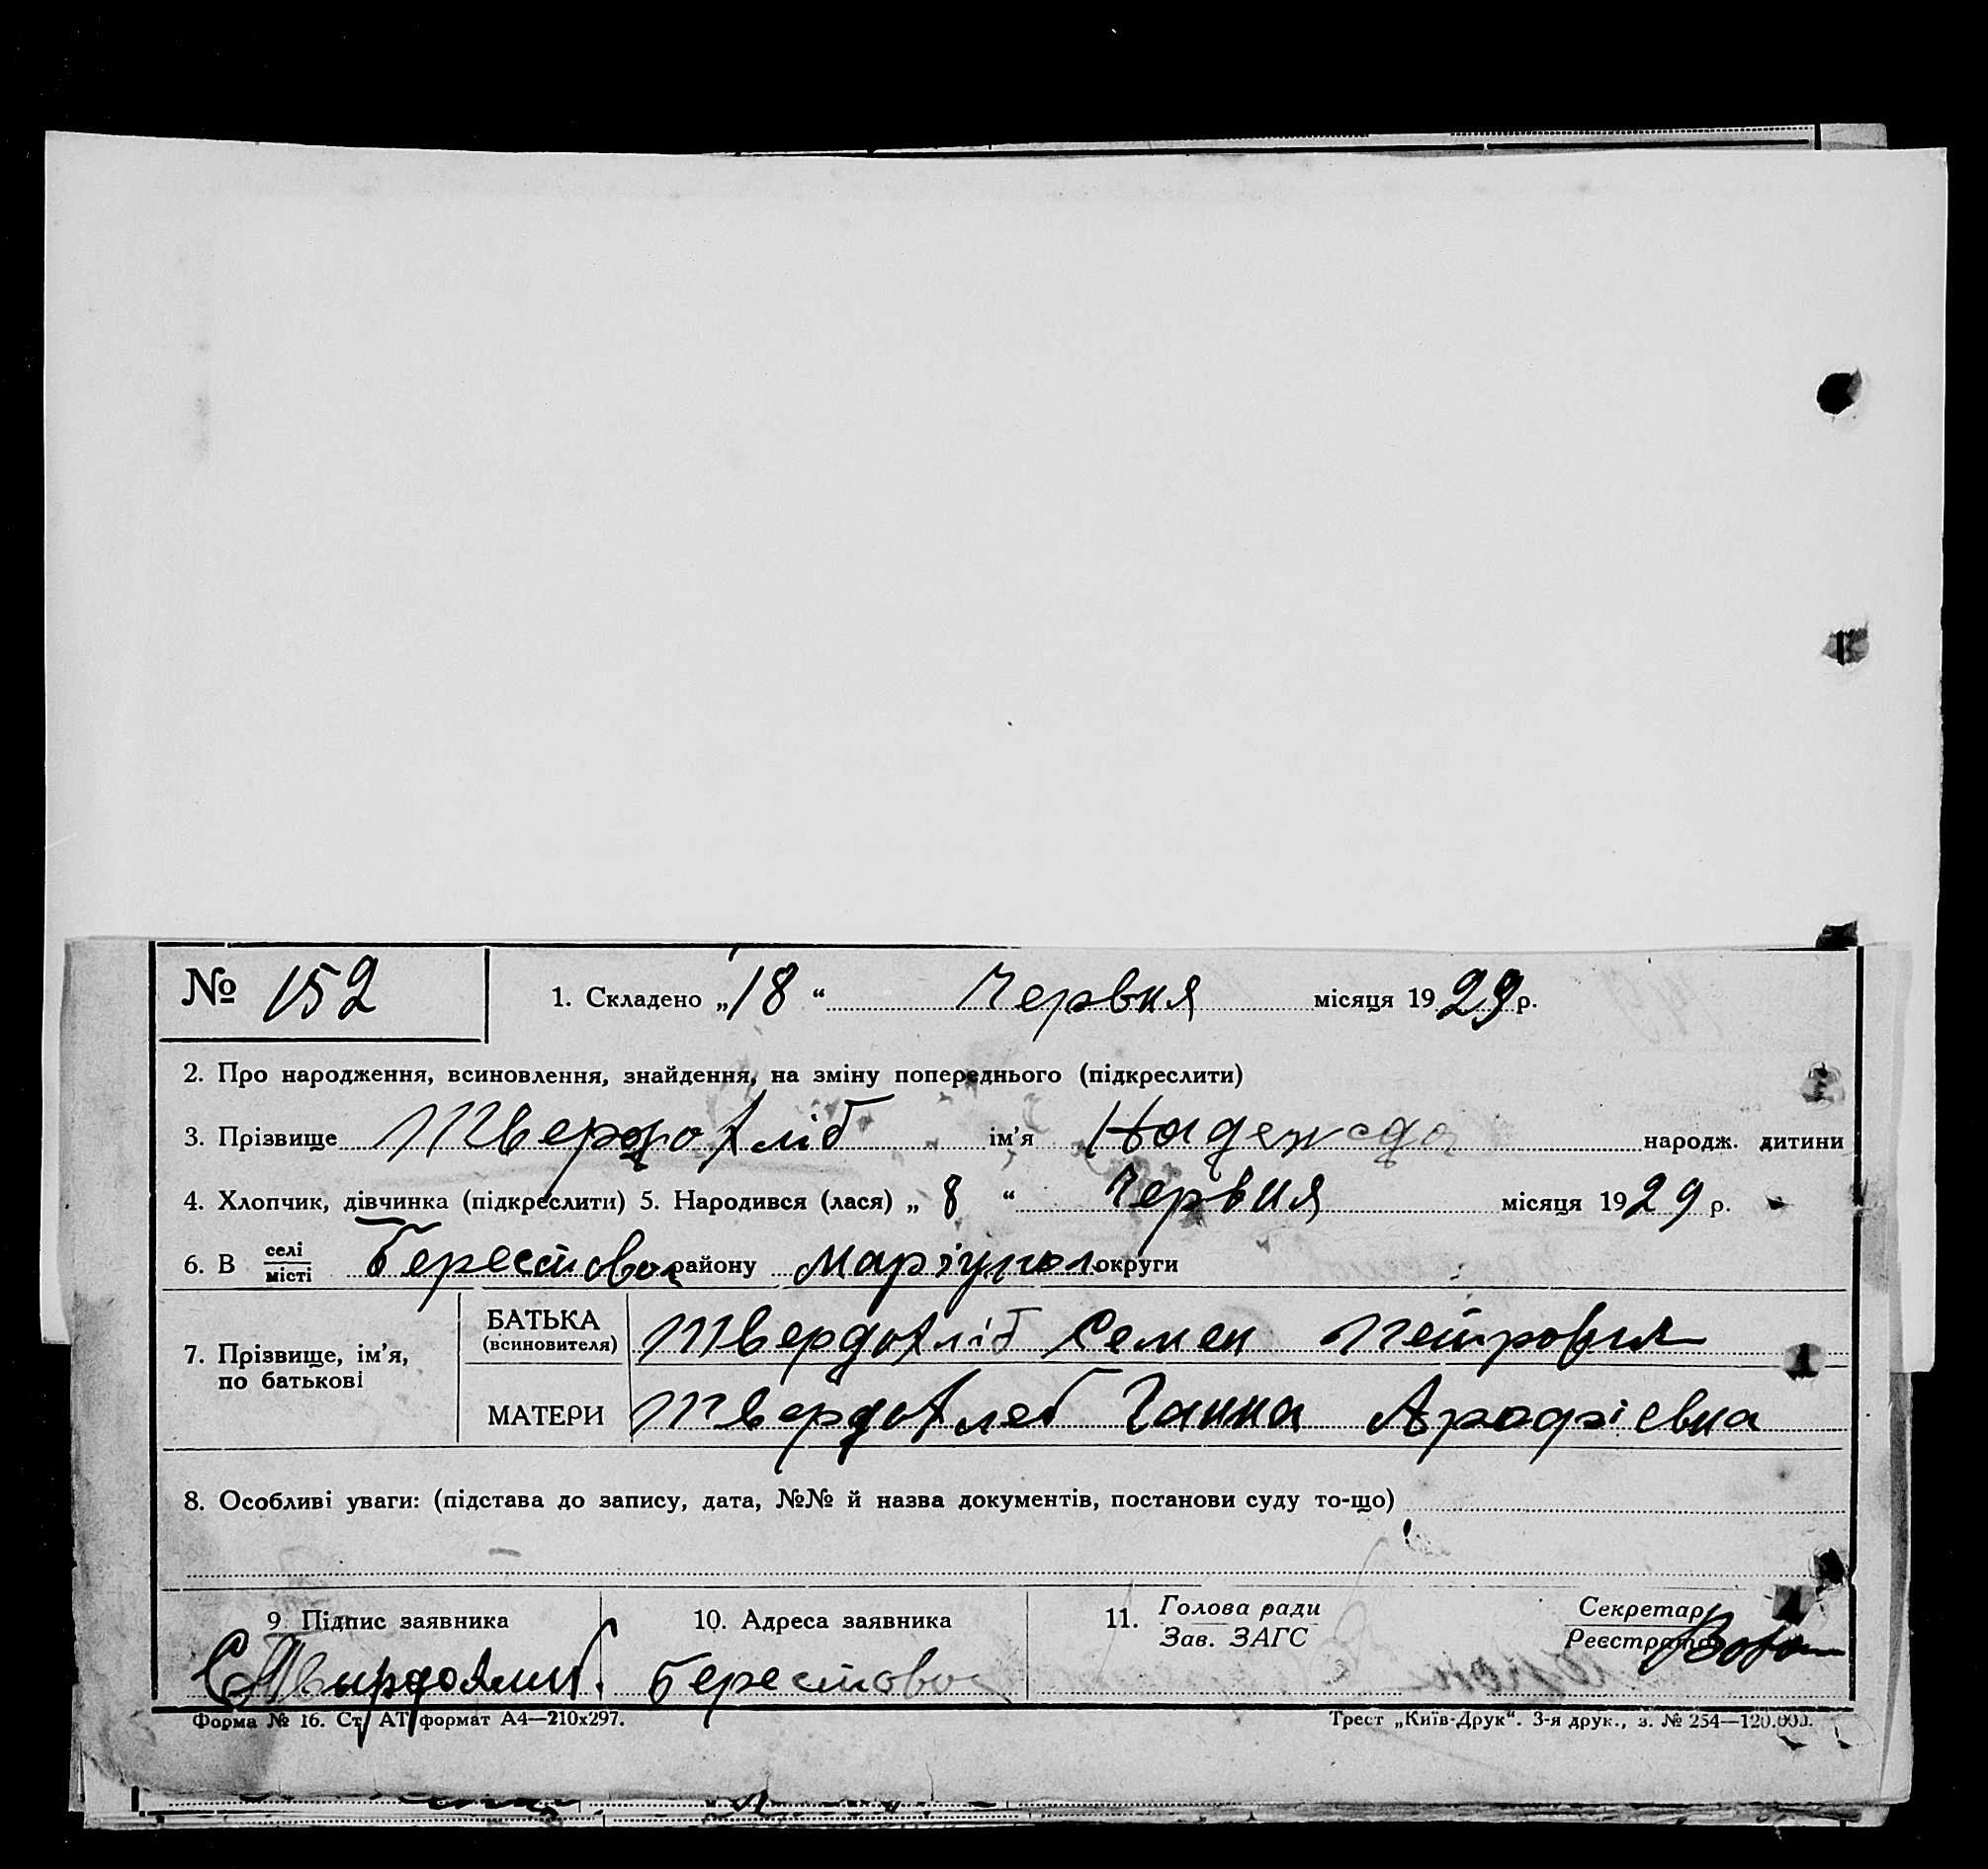 № 152
1. Складено „18“ Червня місяця 1929 р.
2. Про народження, всиновлення, знайдення, на зміну попереднього (підкреслити)
3. Прізвище Твердохліб ім’я Надежда народж. дитини
4. Хлопчик, дівчинка (підкреслити) 5. Народився (лася) „ 8 “ Червня місяця 1929 р.
6. В селі/місті Берестовое району Маріупол округи
7. Прізвище, ім’я, по батькові
БАТЬКА (всиновителя) Твердохліб Семен Петрович
МАТЕРИ Твердохлеб Ганна
8. Особливі уваги: (підстава до запису, дата, №№ й назва документів, постанови суду то-що)
9 Підпис заявника 10. Адреса заявника 11. Голова ради Секретар
Зав. ЗАГС Реєстратор
Берестовое
Форма № 16. Ст. АТ формат А4—210х297. Трест „Київ-Друк“. 3-я друк., з. № 254—120.000.